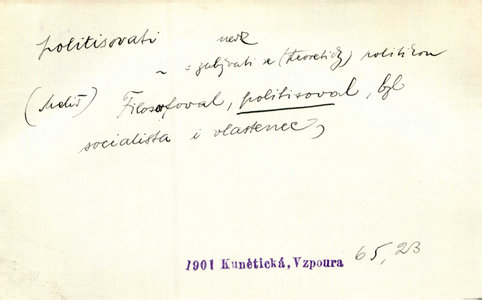 politisovati ned.
~ = zabývati se (theoreticky) politikou
Filosofoval, politisoval, byl
socialista i vlastenec,
1901 Kunětická, Vzpoura 65, 23